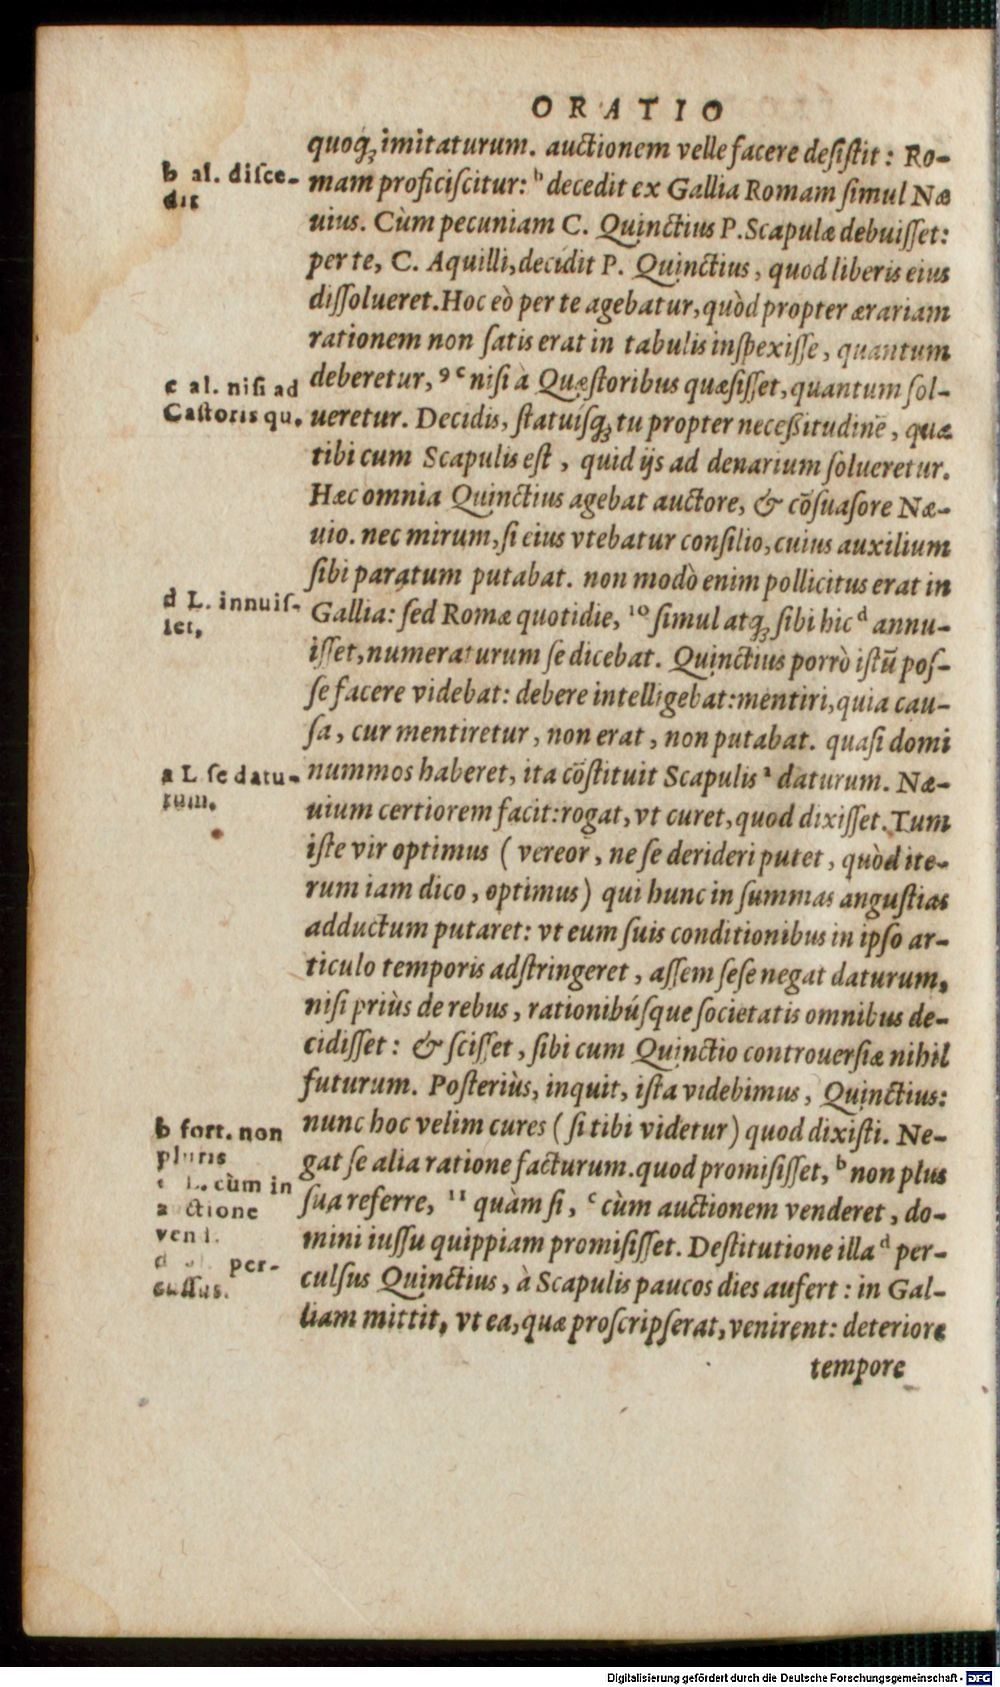 ORATIO
quoq; imitaturum. auctionem velle facere desistit: Ro-
b al. disce-
dit
mam proficiscitur: b decedit ex Gallia Romam simul Næ
uius. Cùm pecuniam C. Quinctius P. Scapulæ debuisset:
per te, C. Aquilli, decidit P. Quinctius, quod liberis eius
dissolueret. Hoc eò per te agebatur, quòd propter ærariam
rationem non satis erat in tabulis inspexisse, quantum
c al. nisi ad
Castoris qu.
deberetur, 9 c nisi à Quæstoribus quæsisset, quantum sol-
ueretur. Decidis, statuisq; tu propter necessitudinē, quæ
tibi cum Scapulis est, quid ijs ad denarium solueretur.
Hæc omnia Quinctius agebat auctore, & cōsuasore Næ-
uio. nec mirum, si eius vtebatur consilio, cuius auxilium
sibi paratum putabat. non modò enim pollicitus erat in
d L. innuis-
set.
Gallia: sed Romæ quotidie, 10 simul atq; sibi hic d annu-
isset, numeraturum se dicebat. Quinctius porrò istū pos-
se facere videbat: debere intelligebat: mentiri, quia cau-
sa, cur mentiretur, non erat, non putabat. quasi domi
a L se datu-
rum.
nummos haberet, ita cōstituit Scapulis a daturum. Næ-
uium certiorem facit: rogat, vt curet, quod dixisset. Tum
iste vir optimus (vereor, ne se derideri putet, quòd ite-
rum iam dico, optimus) qui hunc in summas angustias
adductum putaret: vt eum suis conditionibus in ipso ar-
ticulo temporis adstringeret, assem sese negat daturum,
nisi priùs de rebus, rationibúsque societatis omnibus de-
cidisset: & scisset, sibi cum Quinctio controuersiæ nihil
futurum. Posteriùs, inquit, ista videbimus, Quinctius:
nunc hoc velim cures (si tibi videtur) quod dixisti. Ne-
b fort. non
pluris
gat se alia ratione facturum. quod promisisset, b non plus
L. cùm in
auctione
sua referre, 11 quàm si, c cùm auctionem venderet, do-
mini iussu quippiam promisisset. Destitutione illa d per-
per-
cussus.
culsus Quinctius, à Scapulis paucos dies aufert: in Gal-
liam mittit, vt ea, quæ proscripserat, venirent: deteriore
tempore
Digitalisierung gefördert durch die Deutsche Forschungsgemeinschaft - DFG